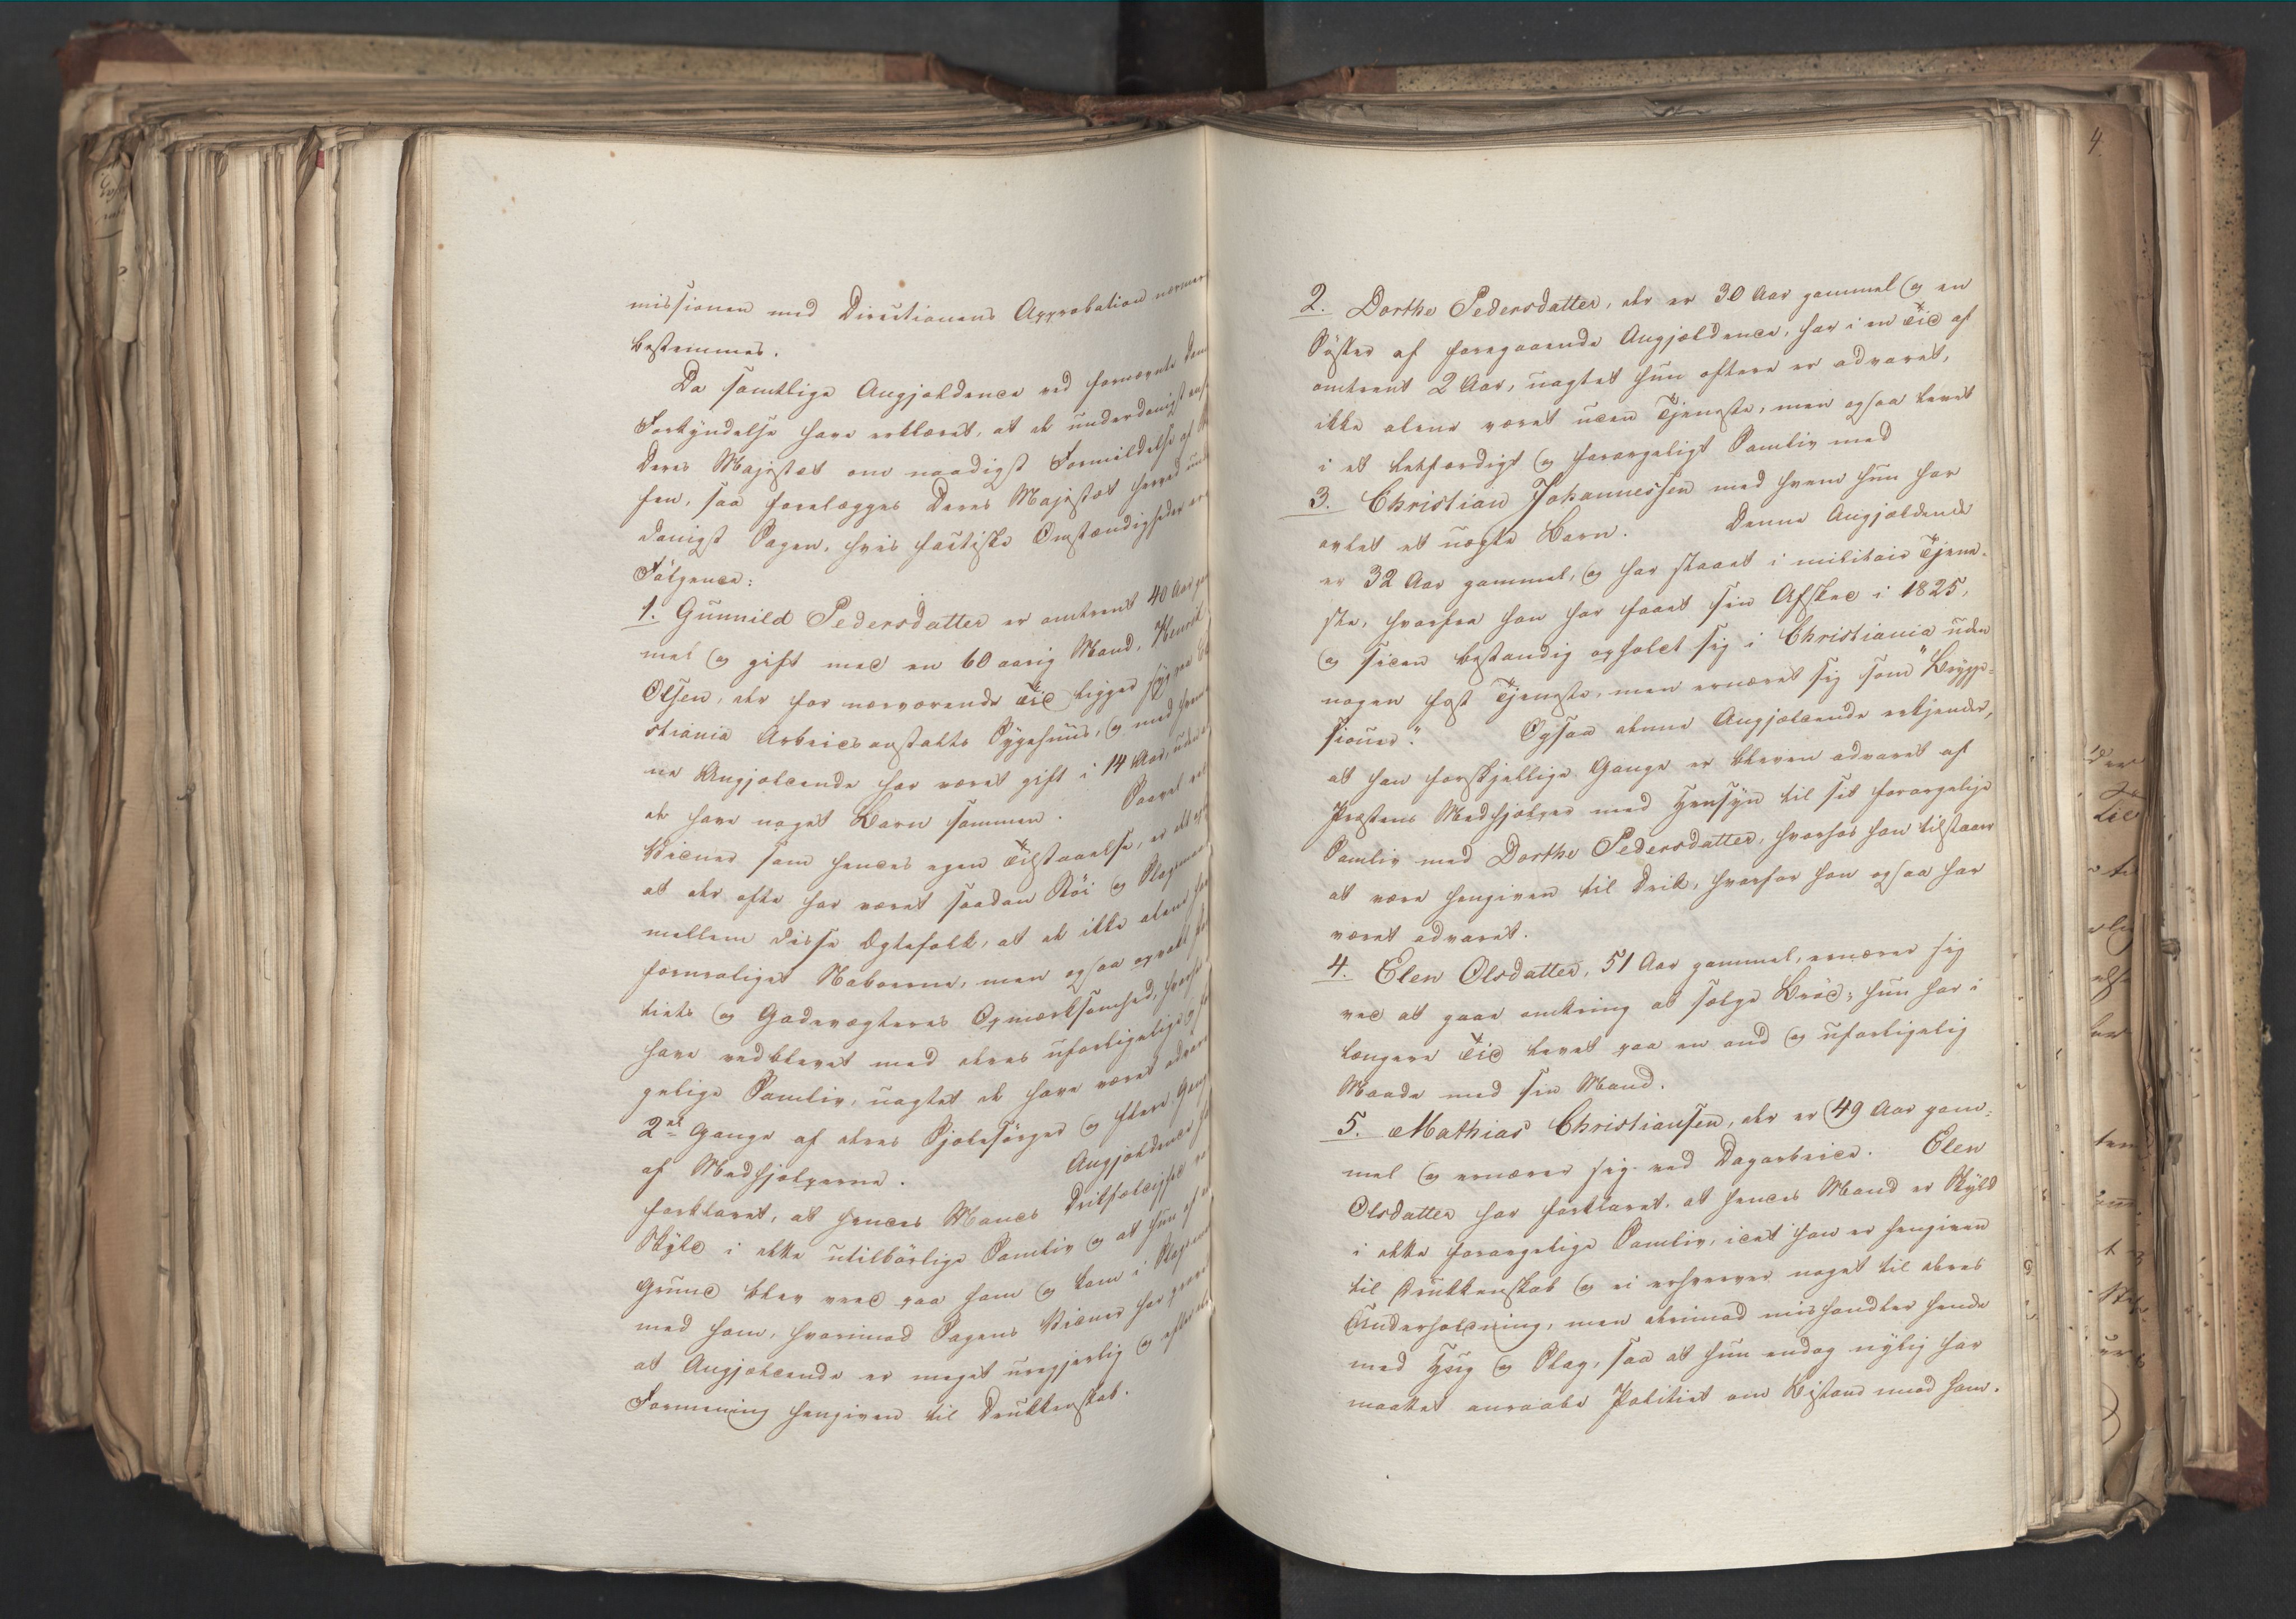 missionen med Directionens Approbation nærmere
bestemmes.
Da samtlige Angjældende ved fornævnte Doms
Forkyndelse have erklæret, at de underdanigst
Deres Majestæt om naadigst Formildelse af
sen, saa forelægges Deres Majestæt herved un¬
danigst Sagen, hvis factiske Omstændigheder ere
Følgende:
1. Gunnild Pedersdatter er omtrent 40 Aar gam
mel og gift med en 60 aarig Mand, Henrik
Olsen, der for nærværende Tid ligger syg paa
stiania Arbeidsanstalts Sygehuus, og med hvem
ne Angjældende har været gift i 14 Aar, uden
de have noget Barn sammen. Saavel ved
Vidner som hendes egen Tilstaaelse, er det
at der ofte har været saadan Støi og Slagsmaal
mellem disse Ægtefolk, at de ikke alene have
foruroliget Naboerne, men ogsaa opvakt Po
litiets og Gadevægternes Opmærksomhed,
have vedblevet med deres uforligelige og
gelige Samliv, uagtet de have været advaret
2de Gange af deres Sjælesørger og flere Gange
af Medhjælperne. Angjældende har
forklaret, at hendes Mands Drikfældighed
Skyld i dette utilbørlige Samliv og at hun af
Grund blev vred paa ham og kom i Slagsmaal
med ham, hvorimod Sagens Vidner har
at Angjældende er meget uregjerlig og efter
Formening hengiven til Drukkenskab.
2. Dorthe Pedersdatter, der er 30 Aar gammel og en
Søster af foregaaende Angjældende, har i en Tid af
omtrent 2 Aar, uagtet hun oftere er advaret,
ikke alene været uden Tjeneste, men ogsaa levet
i et letfærdigt og forargeligt Samliv med
3. Christian Johannessen med hvem hun har
avlet et uægte Barn. Denne Angjældende
er 32 Aar gammel, og har staaet i militair Tjene¬
ste, hvorfra han har faaet sin Afsked i 1825,
og siden bestandig opholdt sig i Christiania uden
nogen fast Tjeneste, men ernæret sig som "Brygge¬
siouer". Ogsaa denne Angjældende erkjender,
at han forskjellige Gange er bleven advaret af
Præstens Medhjælper med Hensyn til sit forargelige
Samliv med Dorthe Pedersdatter, hvorhos han tilstaaer
at være hengiven til Drik, hvorfor han ogsaa har
været advaret.
4. Elen Olsdatter, 51 Aar gammel, ernærer sig
ved at gaae omkring at sælge Brød; hun har i
længere Tid levet paa en ond og uforligelig
Maade med sin Mand.
5. Mathias Christiansen, der er 49 Aar gam¬
mel og ernærer sig ved Dagarbeide. Elen
Olsdatter har forklaret, at hendes Mand er Skyld
i dette forargelige Samliv, idet han er hengiven
til Drukkenskab og ei erhverver noget til deres
Underholdning, men derimod mishandler hende
med Hug og Slag, saa at hun endog nylig har
maattet anraabe Politiet om Bistand mod ham.
4.